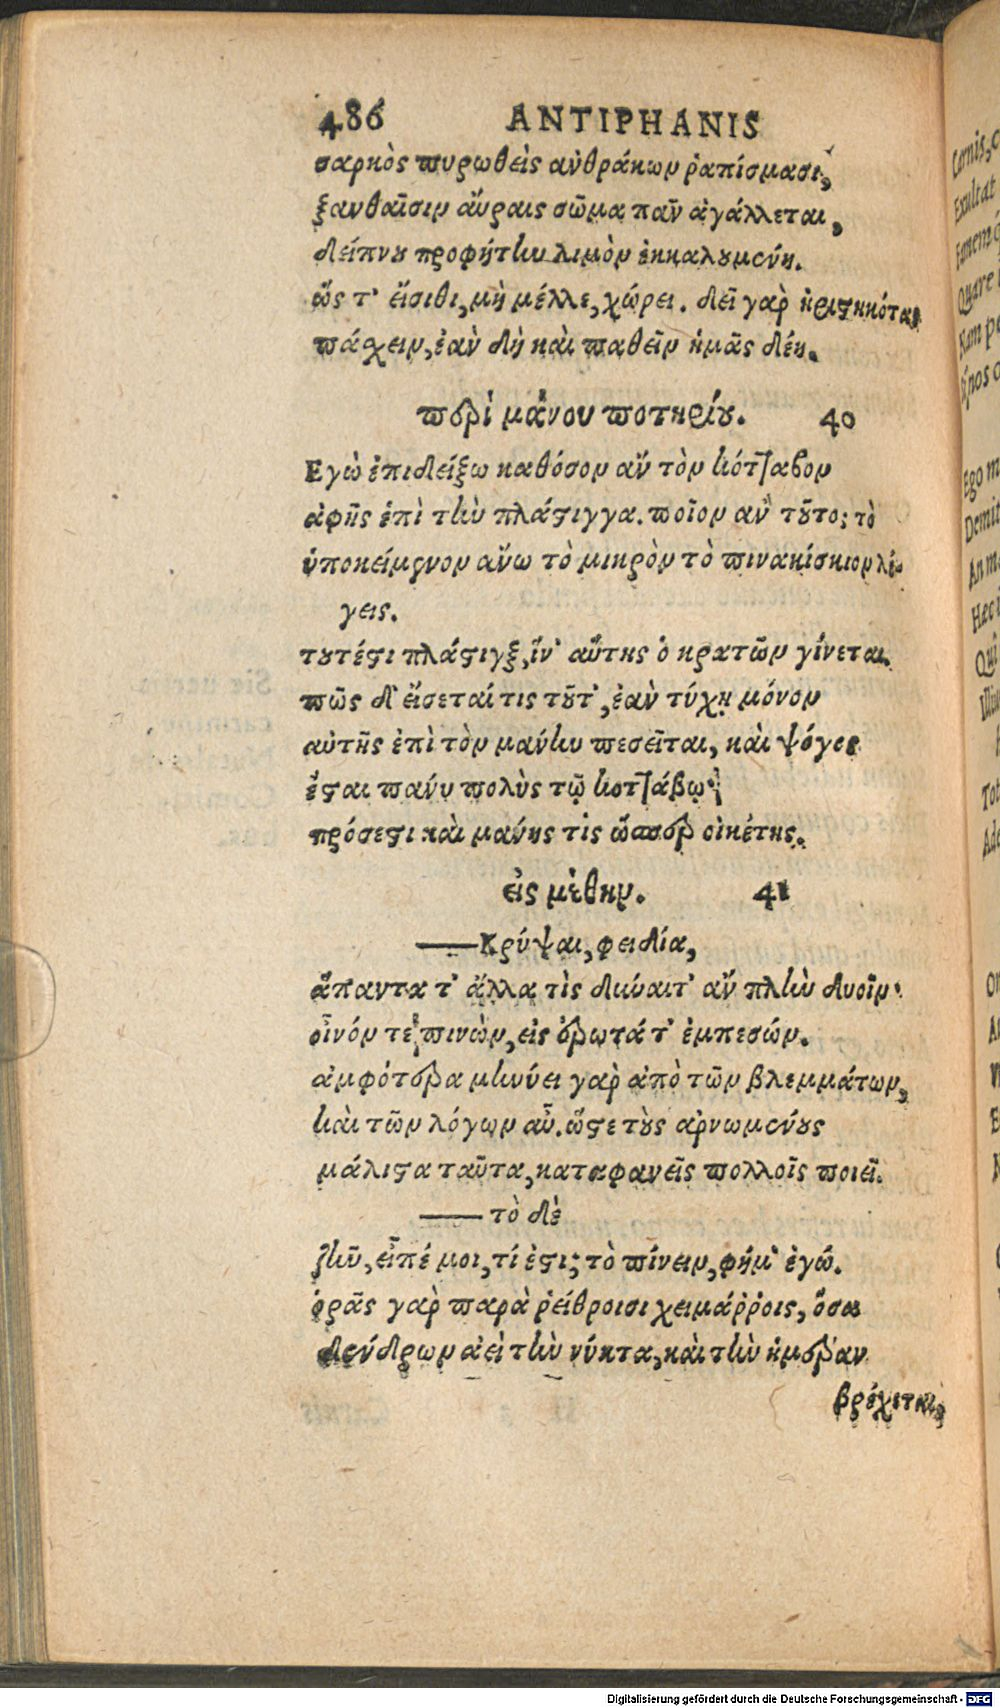 486 ANTIPHANIS
σαρκὸς πυρωθεὶς ἀνθράκων ῥαπίσμασι,
ξανθαῖσιν αὔραις σῶμα πᾶν ἀγάλλεται,
δείπνου προφήτην λιμὸν ἐκκαλουμένη.
ὥς τ' εἴσιθι, μὴ μέλλε, χώρει. δεῖ γὰρ ἠριστηκότας
πάσχειν, ἐὰν δὴ καὶ παθεῖν ἡμᾶς δέη.
περὶ μάνου ποτηρίου. 40
Εγὼ ἐπιδείξω καθόσον ἂν τὸν κότταβον
ἀφῇς ἐπὶ τὴν πλάστιγγα. ποῖον ἂν τοῦτο; τὸ
ὑποκείμενον ἄνω τὸ μικρὸν τὸ πινακίσκιον λέ-
γεις.
τουτέστι πλάστιγξ, ἵν' αὕτης ὁ κρατῶν γίνεται.
πῶς δ' εἴσεταί τις τοῦτ', ἐὰν τύχῃ μόνον
αὐτῆς ἐπὶ τὸν μάνην πεσεῖται, καὶ ψόγος
ἔσται πάνυ πολὺς τῷ κοττάβῳ
πρόσεστι καὶ μάνης τὶς ὥσπερ οἰκέτης.
εἰς μέθην. 41
Κρύψαι, φειδία,
ἅπαντα τ' ἄλλα τὶς δύναιτ' ἂν πλὴν δυοῖν·
οἶνόν τε πινὼν, εἰς ἔρωτά τ' ἐμπεσών.
ἀμφότερα μηνύει γὰρ ἀπὸ τῶν βλεμμάτων,
καὶ τῶν λόγων αὖ. ὥστε τοὺς ἀρνωμένους
μάλιστα ταῦτα, καταφανεῖς πολλοῖς ποιεῖ.
τὸ δὲ
ζῆν, εἶπέ μοι, τί ἐστι; τὸ πίνειν, φήμ' ἐγώ.
ὁρᾶς γὰρ παρὰ ῥείθροισι χειμάῤῥοις, ὅσα
δένδρων ἀεὶ τὴν νύκτα, καὶ τὴν ἡμέραν
βρέχεται,
Digitalisierung gefördert durch die Deutsche Forschungsgemeinschaft - DFG